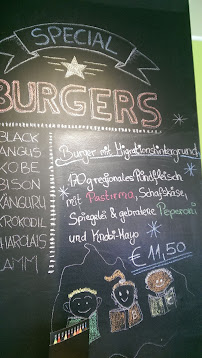 SPECIAL
BURGERS
BLACK
ANGUS
KOBE
BISON
KÄNGURU
KROKODIL
CHAROLAIS
LAMM
Burger mit Migrationshintergrund
170g regionales Rindfleisch
mit Pastirma, Schafskäse,
Spiegelei & gebratene Peperoni
und Knobi-Mayo
€ 11,50